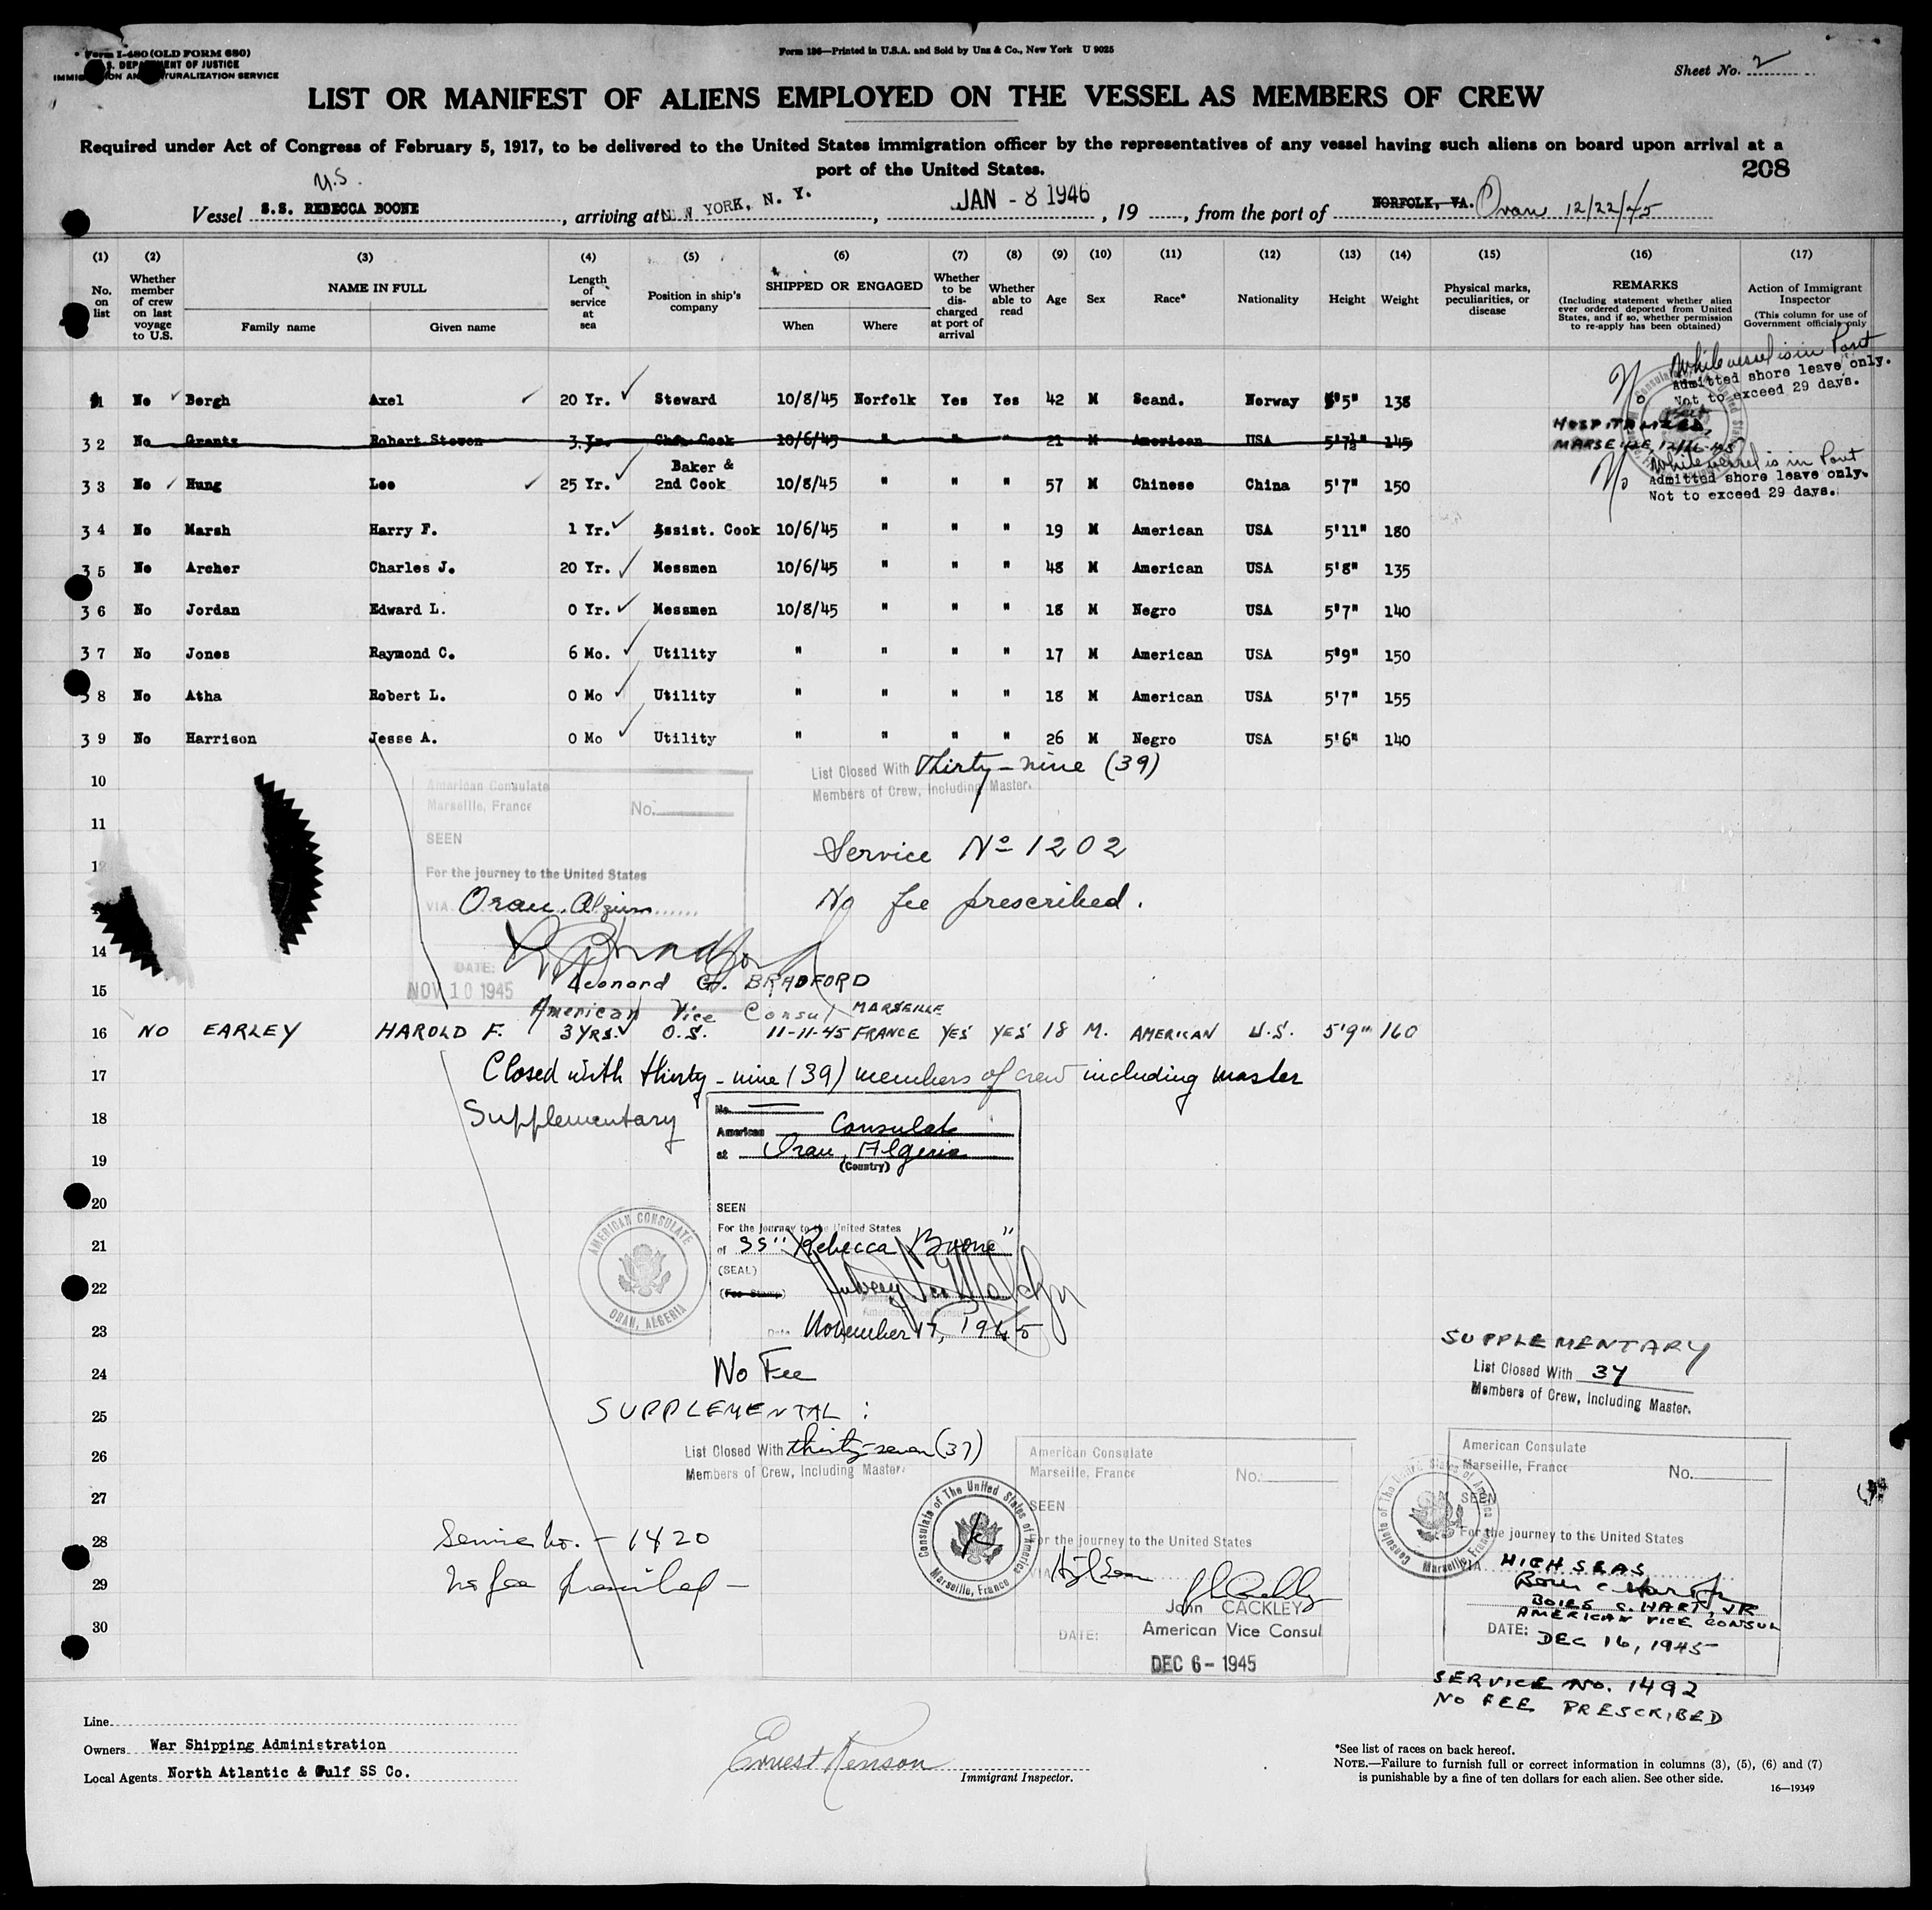 Form I-480 (OLD FORM 680)
U.S. DEPARTMENT OF JUSTICE
IMMIGRATION AND NATURALIZATION SERVICE
Form 136—Printed in U.S.A. and Sold by Unz & Co., New York U 9025
Sheet No. 2
LIST OR MANIFEST OF ALIENS EMPLOYED ON THE VESSEL AS MEMBERS OF CREW
Required under Act of Congress of February 5, 1917, to be delivered to the United States immigration officer by the representatives of any vessel having such aliens on board upon arrival at a
port of the United States.
208
U.S.
Vessel S.S. REBECCA BOONE, arriving at NEW YORK, N. Y., JAN - 8 1946, 19, from the port of NORFOLK, VA. Oran 12/22/45
(1) (2) (3) (4) (5) (6) (7) (8) (9) (10) (11) (12) (13) (14) (15) (16) (17)
No. on list
Whether member of crew on last voyage to U.S.
NAME IN FULL
Family name Given name
Length of service at sea
Position in ship's company
SHIPPED OR ENGAGED
When Where
Whether to be discharged at port of arrival
Whether able to read
Age
Sex
Race*
Nationality
Height
Weight
Physical marks, peculiarities, or disease
REMARKS
(Including statement whether alien ever ordered deported from United States, and if so, whether permission to re-apply has been obtained)
Action of Immigrant Inspector
(This column for use of Government officials only
No While vessel is in Port
Admitted shore leave only.
Not to exceed 29 days.
31 No Bergh Axel 20 Yr. Steward 10/8/45 Norfolk Yes Yes 42 M Scand. Norway 5'5" 138
32 No Grantz Robert Steven 3 Yr. Ch. Cook 10/6/45 " " " 21 M American USA 5'7½" 145
HOSPITALIZED,
MARSEILLE, 12/16-45
33 No Hung Lee 25 Yr. Baker & 2nd Cook 10/8/45 " " " 57 M Chinese China 5'7" 150
No While vessel is in Port
Admitted shore leave only.
Not to exceed 29 days.
34 No Marsh Harry F. 1 Yr. Assist. Cook 10/6/45 " " " 19 M American USA 5'11" 180
35 No Archer Charles J. 20 Yr. Messmen 10/6/45 " " " 48 M American USA 5'8" 135
36 No Jordan Edward L. 0 Yr. Messmen 10/8/45 " " " 18 M Negro USA 5'7" 140
37 No Jones Raymond C. 6 Mo. Utility " " " " 17 M American USA 5'9" 150
38 No Atha Robert L. 0 Mo Utility " " " " 18 M American USA 5'7" 155
39 No Harrison Jesse A. 0 Mo Utility " " " " 26 M Negro USA 5'6" 140
List Closed With Thirty-nine (39)
Members of Crew, Including Master.
10
11
12
14
15
American Consulate
Marseille, France
No.
SEEN
For the journey to the United States
VIA Oran, Algeria
DATE:
NOV 10 1945
Service No 1202
No fee prescribed.
Leonard G. BRADFORD
American Vice Consul
MARSEILLE
16 NO EARLEY HAROLD F. 3 YRS. O.S. 11-11-45 FRANCE YES YES 18 M. AMERICAN U.S. 5'9" 160
17
Closed with thirty-nine (39) members of crew including master
18
Supplementary
19
20
21
22
23
24
25
26
27
28
29
30
No.
American Consulate
at Oran, Algeria
(Country)
SEEN
For the journey to the United States
of SS "Rebecca Boone"
(SEAL)
(Fee Stamp)
American Vice Consul
Date November 17, 1945
AMERICAN CONSULATE
ORAN, ALGERIA
No Fee
SUPPLEMENTAL:
List Closed With thirty-seven (37)
Members of Crew, Including Master.
Service No. - 1420
No fee prescribed -
Consulate of The United States of America
Marseille, France
American Consulate
Marseille, France
No.
SEEN
For the journey to the United States
VIA
John CACKLEY
American Vice Consul
DATE:
DEC 6 - 1945
SUPPLEMENTARY
List Closed With 37
Members of Crew, Including Master.
American Consulate
Marseille, France
No.
SEEN
For the journey to the United States
VIA HIGH SEAS
Boies C. Hart Jr
BOIES C. HART, JR
AMERICAN VICE CONSUL
DATE: DEC 16, 1945
Consulate of The United States of America
Marseille, France
SERVICE NO. 1492
NO FEE PRESCRIBED
Line
Owners War Shipping Administration
Local Agents North Atlantic & Gulf SS Co.
Ernest Kenson
Immigrant Inspector.
*See list of races on back hereof.
NOTE.—Failure to furnish full or correct information in columns (3), (5), (6) and (7)
is punishable by a fine of ten dollars for each alien. See other side.
16—19349